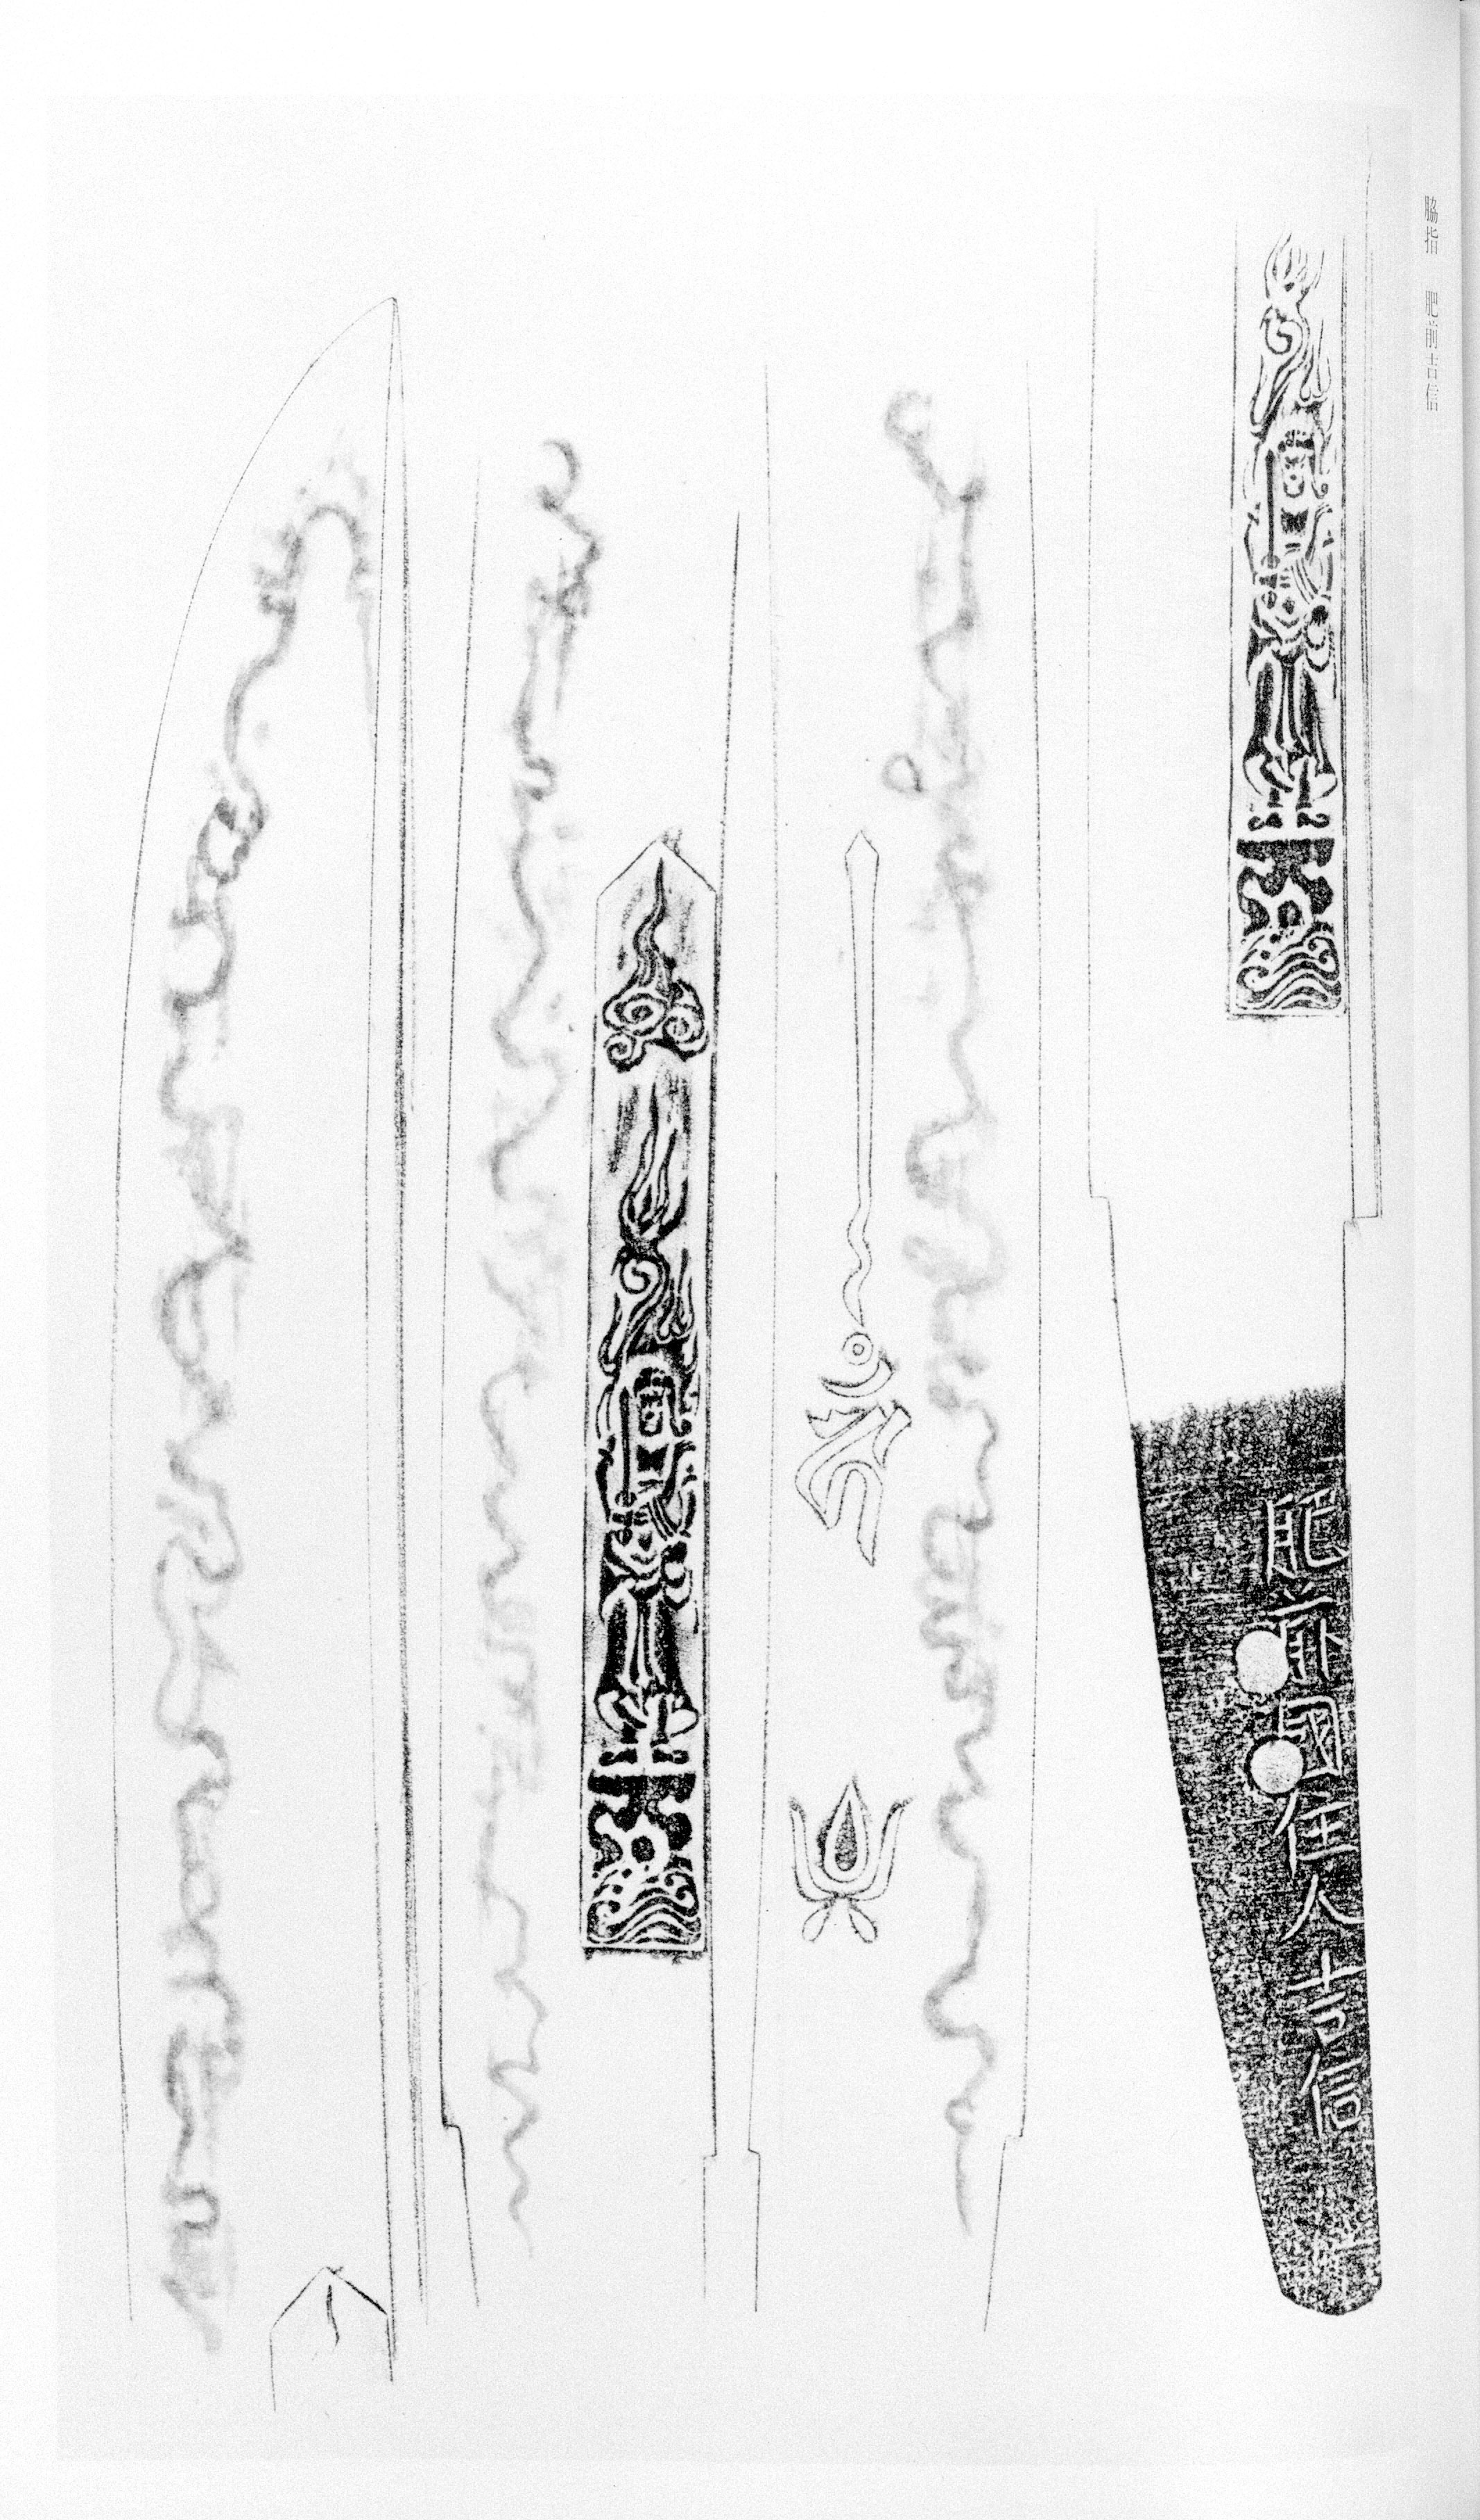 脇指 肥前吉信
肥前國住人吉信